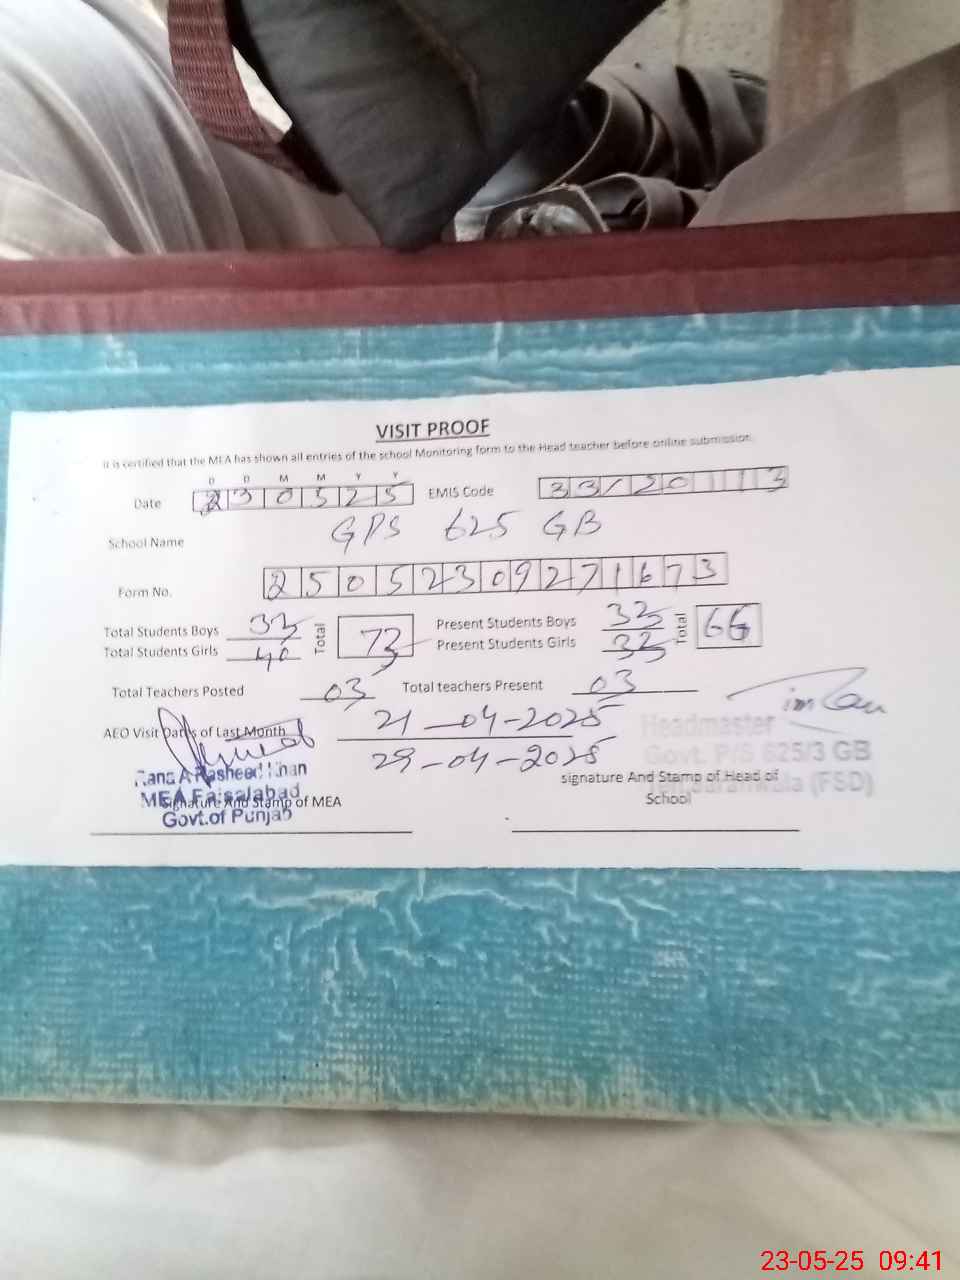 VISIT PROOF
It is certified that the MEA has shown all entries of the school Monitoring form to the Head teacher before online submission.
D D M M Y Y
Date 230525 EMIS Code 33120113
School Name GPS 625 GB
Form No. 25052309271673
Total Students Boys 33 Total 73 Present Students Boys 33 Total 66
Total Students Girls 40 Present Students Girls 33
Total Teachers Posted 03 Total teachers Present 03
AEO Visit Dates of Last Month 21-04-2025
29-04-2025
Headmaster
Govt. P/S 625/3 GB
(FSD)
Rana A Rasheed Khan
MEA Faisalabad
Govt.of Punjab
Signature And Stamp of MEA
signature And Stamp of Head of
School
23-05-25 09:41